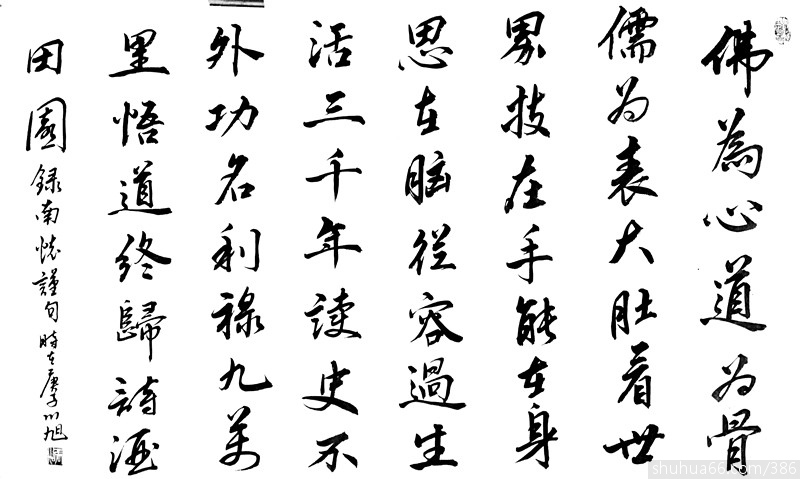 佛為心道为骨
儒为表大肚看世
界技在手能在身
思在脑從容過生
活三千年读史不
外功名利禄九萬
里悟道终歸詩酒
田園 錄南懷謹句 時在庚子川旭
shuhua66.com/386